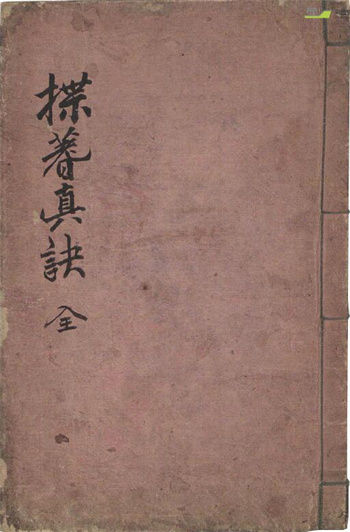 揲蓍真訣 全